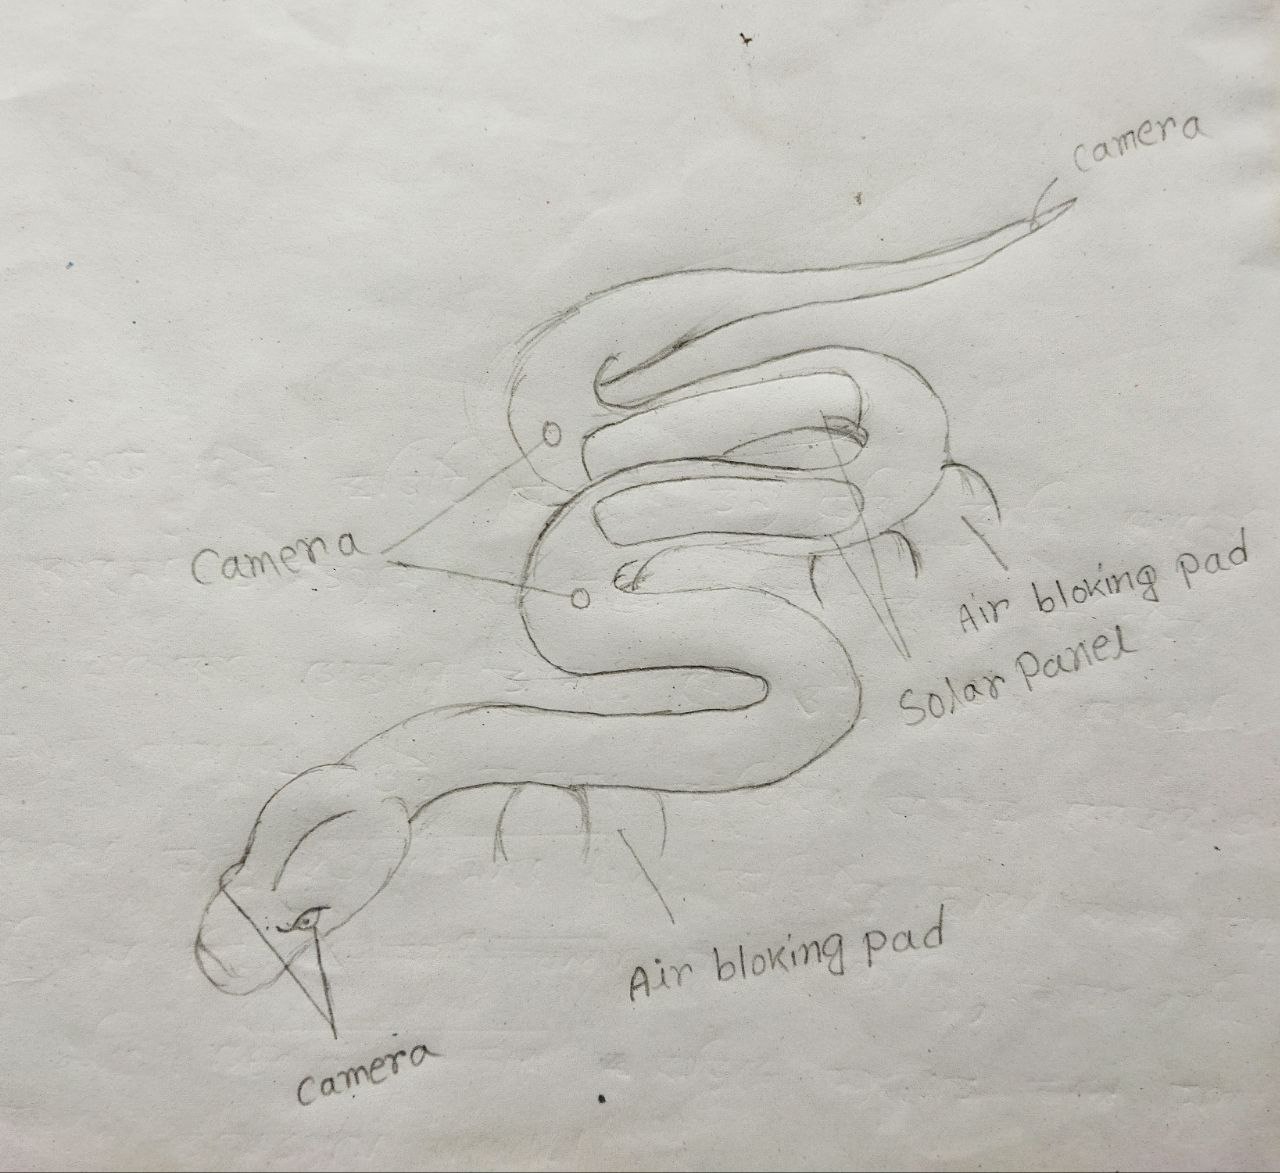 camera
Camera
Air bloking pad
Solar Panel
Air bloking pad
camera